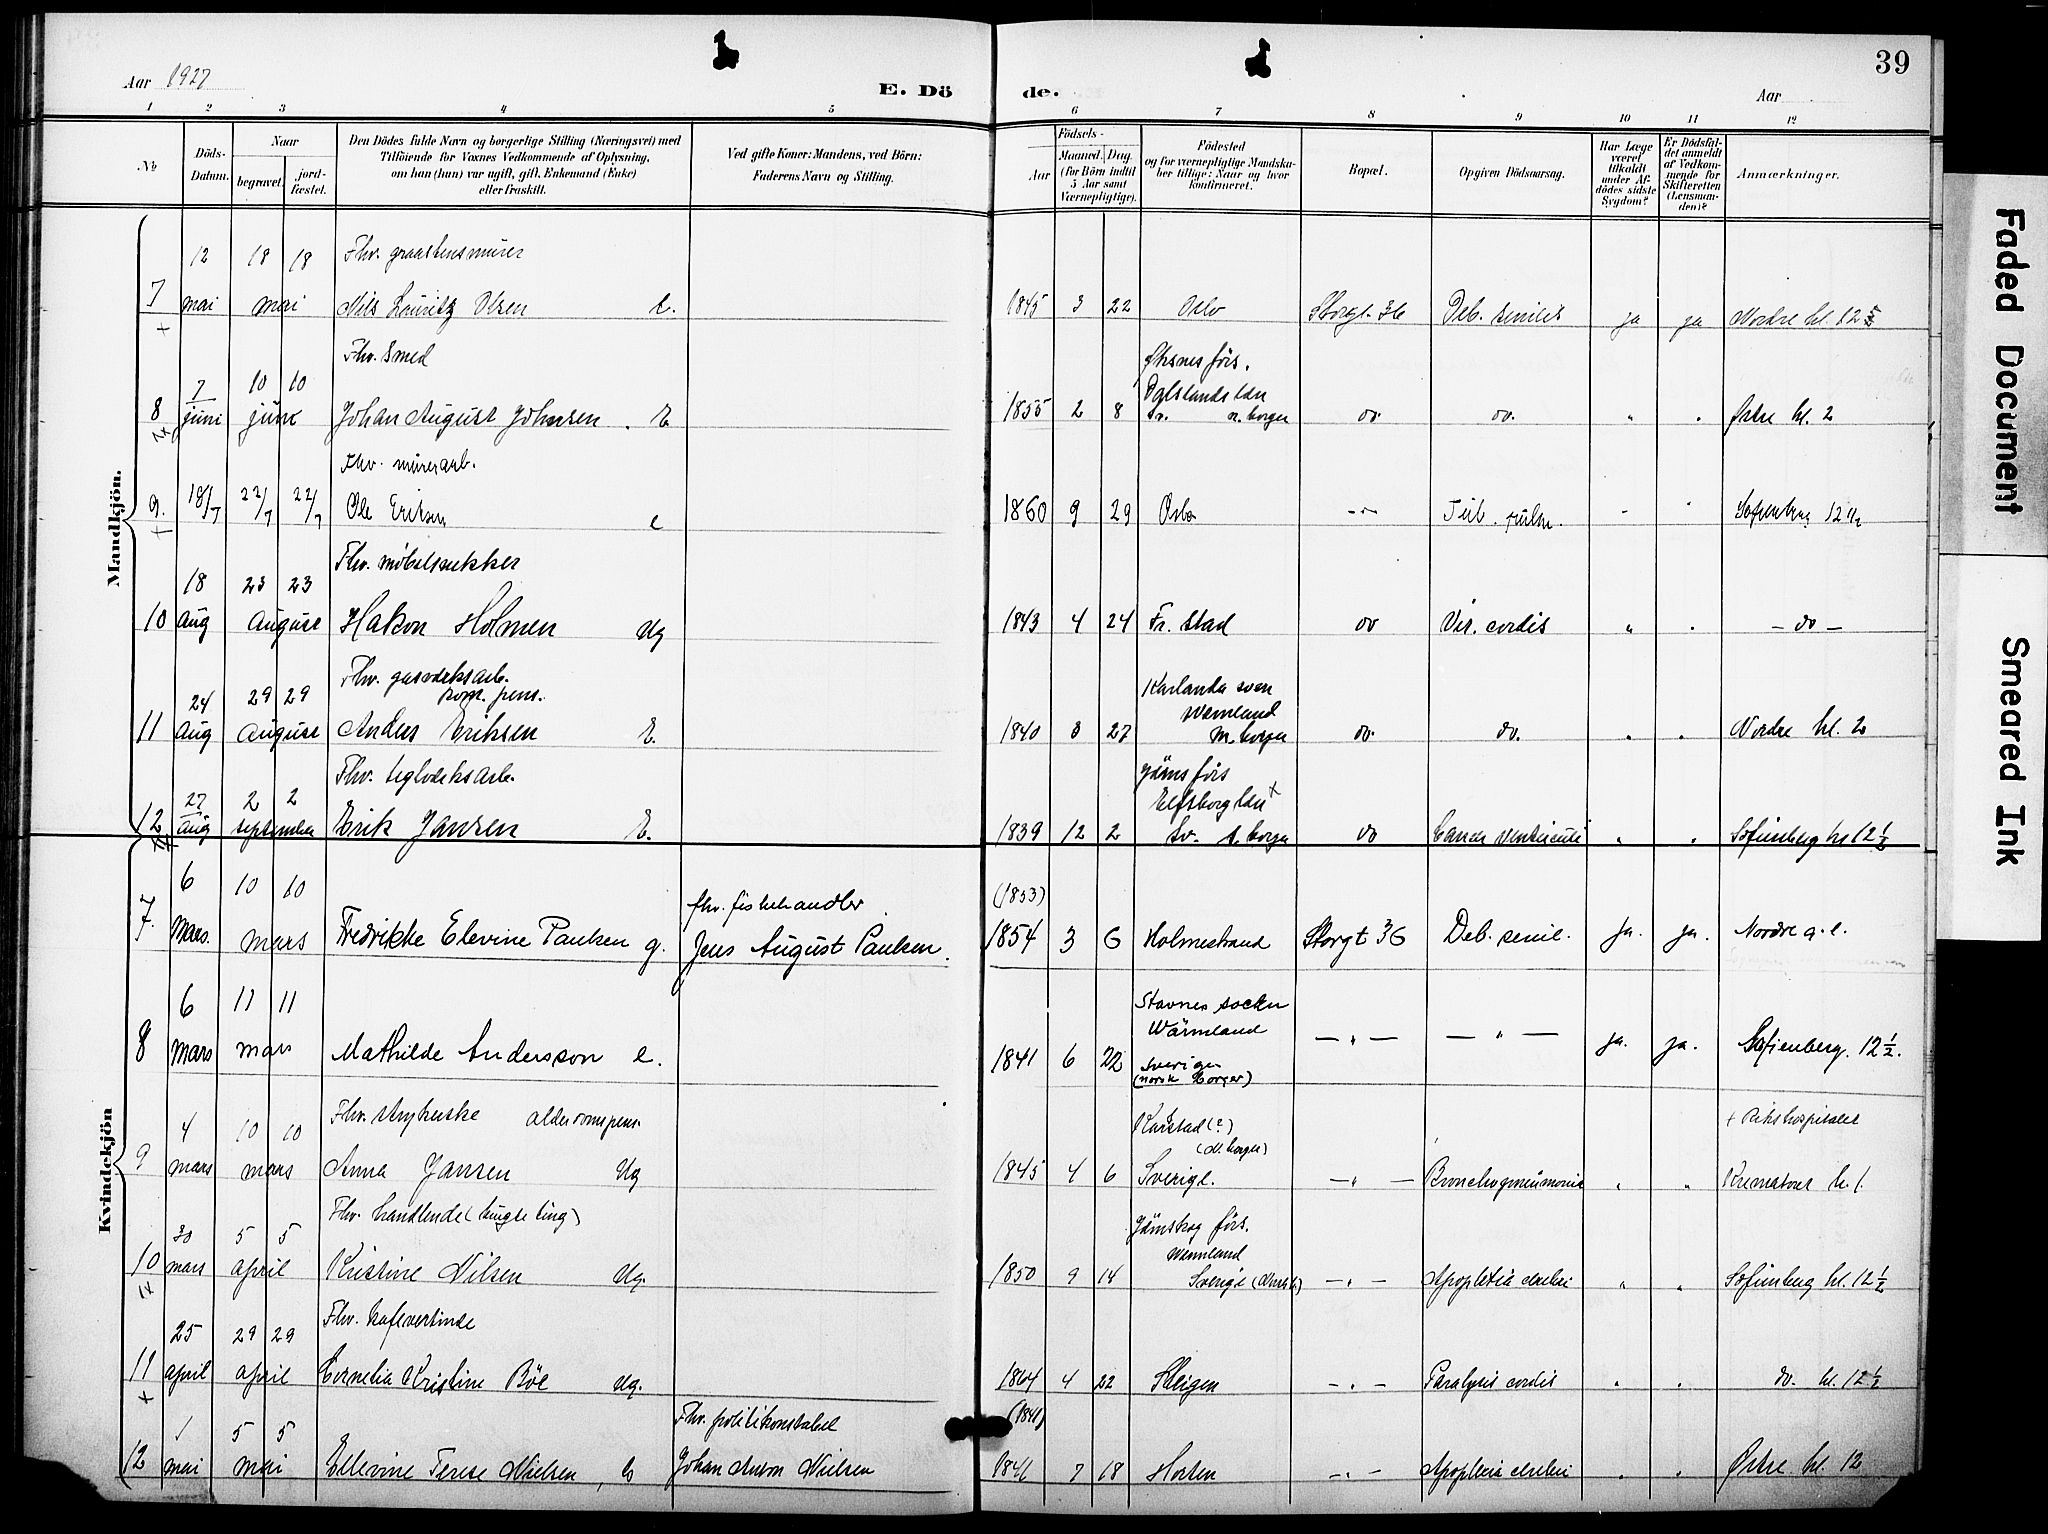 39
Aar 1927
E. Dö
de.
Aar
1 2 3 4 5 6 7 8 9 10 11 12
No
Döds-Datum.
Naar
begravet.
jord-fæstet.
Den Dödes fulde Navn og borgerlige Stilling (Næringsvei) med
Tilföiende for Voxnes Vedkommende af Oplysning,
om han (hun) var ugift, gift, Enkemand (Enke)
eller fraskilt.
Ved gifte Koner: Mandens, ved Börn:
Faderens Navn og Stilling.
Födsels-
Aar
Maaned. Dag.
(for Börn indtil
5 Aar samt
Værnepligtige).
Födested
og for værnepligtige Mandska-
ber tillige: Naar og hvor
konfirmeret.
Bopæl.
Opgiven Dödsaarsag.
Har Læge
været
tilkaldt
under Af-
dödes sidste
Sygdom?
Er Dödsfal-
det anmeldt
af Vedkom-
mende for
Skifteretten
(Lensman-
den)?
Anmærkninger.
Mandkjön.
12 18 18 Fhv. graastensmurer
7 mai mai Nils Lauritz Olsen E. 1845 3 22 Oslo Storgt. 36 Deb. senilis ja ja Nordre kl. 12
Fhv. Smed
7 10 10
8 juni juni Johan August Johnsen E. 1855 2 8 Dalslands län Sv. n. borger do. do. " " Østre kl. 2
Fhv. murerarb.
9. 18/7 22/7 22/7 Ole Eriksen e 1860 9 29 Oslo -"- Tub. pulm. " " Sofienberg 12 1/2
Fhv. møbelsnekker
18 23 23
10 Aug August Hakon Holmen Ug 1843 4 24 Fr.stad do Vit. cordis " " — do —
Fhv. gasverksarb.
kom. pens.
24 29 29
11 Aug August Anders Eriksen E. 1840 8 27 Karlanda sven Wermland n. borger do. do. " " Nordre kl. 2
Fhv. teglverksarb.
27 2 2
12 aug september Erik Jansen E. 1839 12 2 Elfsborg län Sv. n. borger do Cancer ventriculi " " Sofienberg kl 12 1/2
Kvindekjön
6 10 10 fhv. fiskehandler (1853)
7. Mars. Mars Fredrikke Elevine Paulsen g. Jens August Paulsen. 1854 3 6 Holmestrand Storgt 36 Deb. senil. Ja. ja. Nordre
6 11 11 Stavnes socken
Wärmland
8 Mars mars Mathilde Andersson e. 1841 6 22 Sverige (norsk borger) — " — — " — ja. ja. Sofienberg. 12 1/2.
Fhv. strykerske alderdomspens. Karstad (?) (N. borger) + Rikshospitalet
4 10 10
9 mars mars Anna Jansen Ug 1845 4 6 Sverige. — " — Bronchopneumonia " " Krematoriet kl. 1
Fhv. handlende
30 5 5 Jämskog förs. Wermland
10 mars april Kristine Nilsen Ug. 1850 9 14 Sverige — " — Apoplexia cerebri " " Sofienberg kl. 12 1/2
Fhv. kafevertinde
25 29 29
11 april april Cornelia Kristine Böe Ug. 1864 4 22 Steigen — " — Paralysis cordis " " do. kl. 12 1/2
Fhv. politikonstabel (1841)
1 5 5
12 mai mai Ellevine Terese Nielsen, E Johan Anton Nielsen 1841 7 18 Horten — " — Apoplexia cerebri " " Østre kl. 12
Faded Document
Smeared Ink